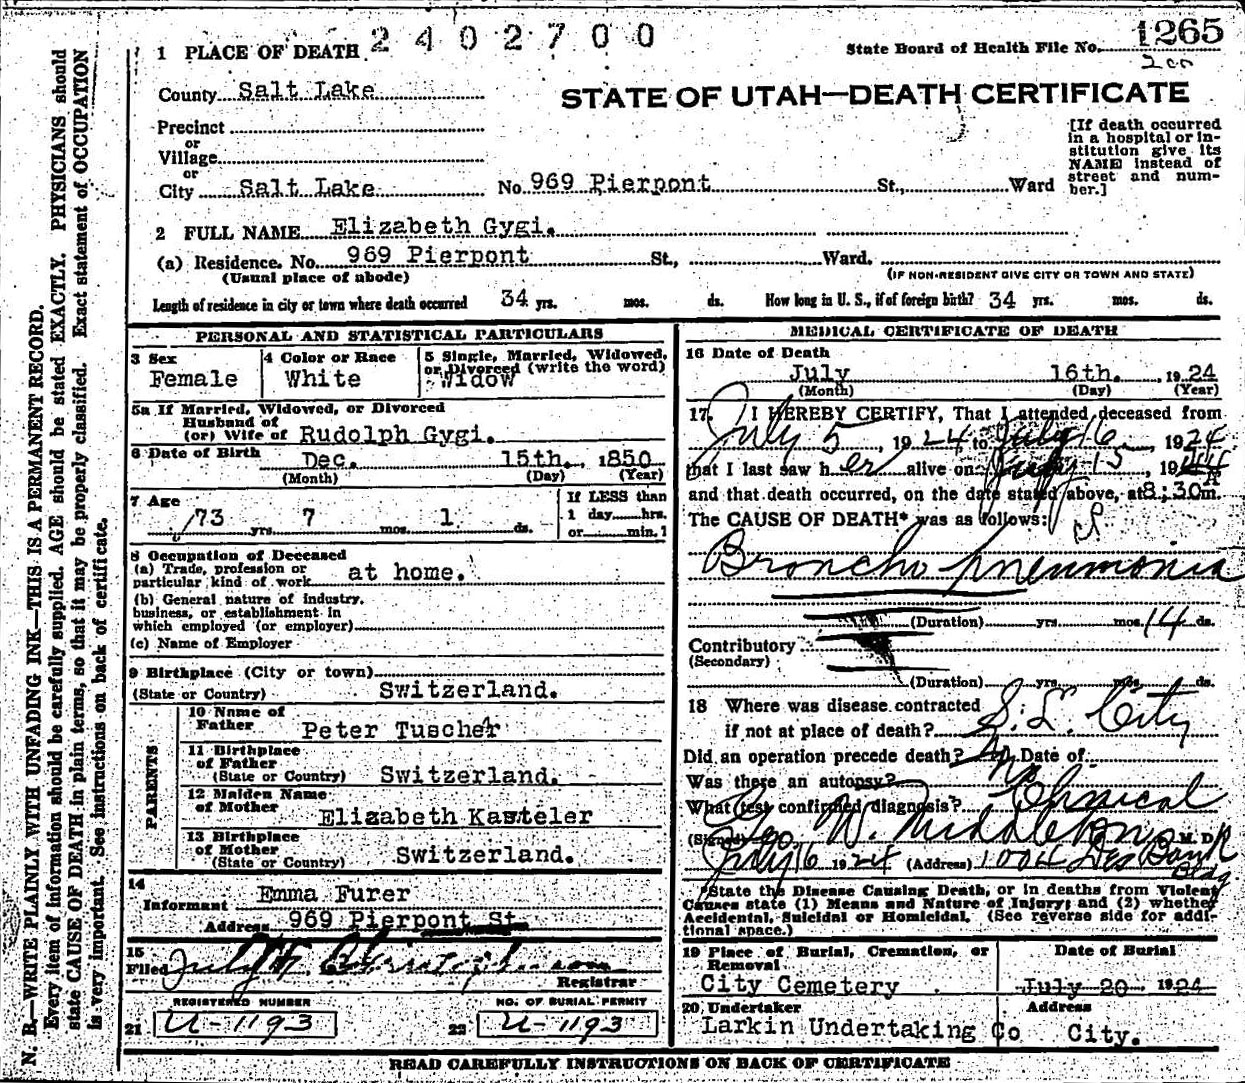 2402700
1265
State Board of Health File No.
200
1 PLACE OF DEATH
County Salt Lake
STATE OF UTAH—DEATH CERTIFICATE
Precinct
or
Village
or
City Salt Lake No. 969 Pierpont St., Ward
[If death occurred
in a hospital or in-
stitution give its
NAME instead of
street and num-
ber.]
2 FULL NAME Elizabeth Gygi.
(a) Residence. No. 969 Pierpont St., Ward.
(Usual place of abode) (IF NON-RESIDENT GIVE CITY OR TOWN AND STATE)
Length of residence in city or town where death occurred 34 yrs. mos. ds. How long in U. S., if of foreign birth? 34 yrs. mos. ds.
PERSONAL AND STATISTICAL PARTICULARS
3 Sex
Female
4 Color or Race
White
5 Single, Married, Widowed,
or Divorced (write the word)
Widow
5a If Married, Widowed, or Divorced
Husband of
(or) Wife of Rudolph Gygi.
6 Date of Birth Dec. 15th., 1850
(Month) (Day) (Year)
7 Age
73 yrs. 7 mos. 1 ds.
If LESS than
1 day hrs.
or min.?
8 Occupation of Deceased
(a) Trade, profession or
particular kind of work at home.
(b) General nature of industry,
business, or establishment in
which employed (or employer)
(c) Name of Employer
9 Birthplace (City or town)
(State or Country) Switzerland.
PARENTS
10 Name of
Father Peter Tuscher
11 Birthplace
of Father
(State or Country) Switzerland.
12 Maiden Name
of Mother
Elizabeth Kasteler
13 Birthplace
of Mother
(State or Country) Switzerland.
14
Informant Emma Furer
Address 969 Pierpont St.
15
Filed July
Registrar
REGISTERED NUMBER
21 U-1193
NO. OF BURIAL PERMIT
22 U-1193
MEDICAL CERTIFICATE OF DEATH
16 Date of Death
July 16th. , 1924
(Month) (Day) (Year)
17. I HEREBY CERTIFY, That I attended deceased from
July 5, 1924 to July 16, 1924
that I last saw her alive on July 15, 1924
and that death occurred, on the date stated above, at 8:30 A m.
The CAUSE OF DEATH* was as follows:
Broncho pneumonia
(Duration) yrs. mos. 14 ds.
Contributory
(Secondary)
(Duration) yrs. mos. ds.
18 Where was disease contracted
if not at place of death? S. L. City
Did an operation precede death? No Date of
Was there an autopsy? No
What test confirmed diagnosis? Clinical
(Signed) Geo. W. Middleton M. D.
July 16 1924 (Address) 1004 Des Bank
Bldg
*State the Disease Causing Death, or in deaths from Violent
Causes state (1) Means and Nature of Injury; and (2) whether
Accidental, Suicidal or Homicidal. (See reverse side for addi-
tional space.)
19 Place of Burial, Cremation, or
Removal
City Cemetery
Date of Burial
July 20 1924
20 Undertaker
Larkin Undertaking Co
Address
City.
READ CAREFULLY INSTRUCTIONS ON BACK OF CERTIFICATE
N. B.—WRITE PLAINLY WITH UNFADING INK—THIS IS A PERMANENT RECORD.
Every item of information should be carefully supplied. AGE should be stated EXACTLY. PHYSICIANS should
state CAUSE OF DEATH in plain terms, so that it may be properly classified. Exact statement of OCCUPATION
is very important. See instructions on back of certificate.